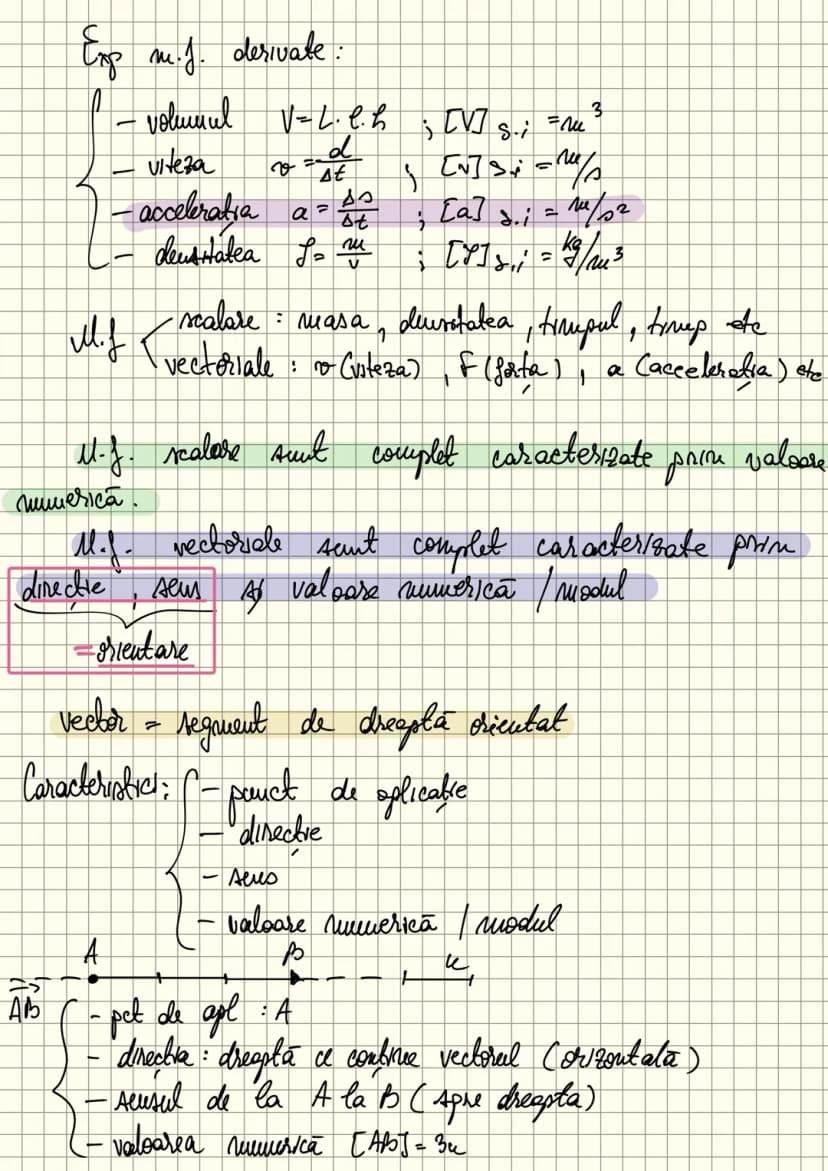 Exp m.f. derivate:
- volumul V = L. l. h ; [V] s.i = m³
- viteza v = d/Δt ; [v] s.i = m/s
- accelerația a = Δv/Δt ; [a] s.i = m/s²
- densitatea ρ = m/V ; [ρ] s.i = kg/m³
M.f
scalare : masa, densitatea, timpul, timp etc
vectoriale : v (viteza), F (forța), a (accelerația) etc
M.f. scalare sunt complet caracterizate prin valoare
numerică.
M.f. vectoriale sunt complet caracterizate prin
direcție, sens și valoare numerică / modul
= orientare
vector = segment de dreaptă orientat
Caracteristici:
- punct de aplicație
- direcție
- sens
- valoare numerică / modul
A B u
AB
- pct de apl : A
- direcția : dreaptă ce conține vectorul (orizontală)
- sensul de la A la B (spre dreapta)
- valoarea numerică [AB] = 3u